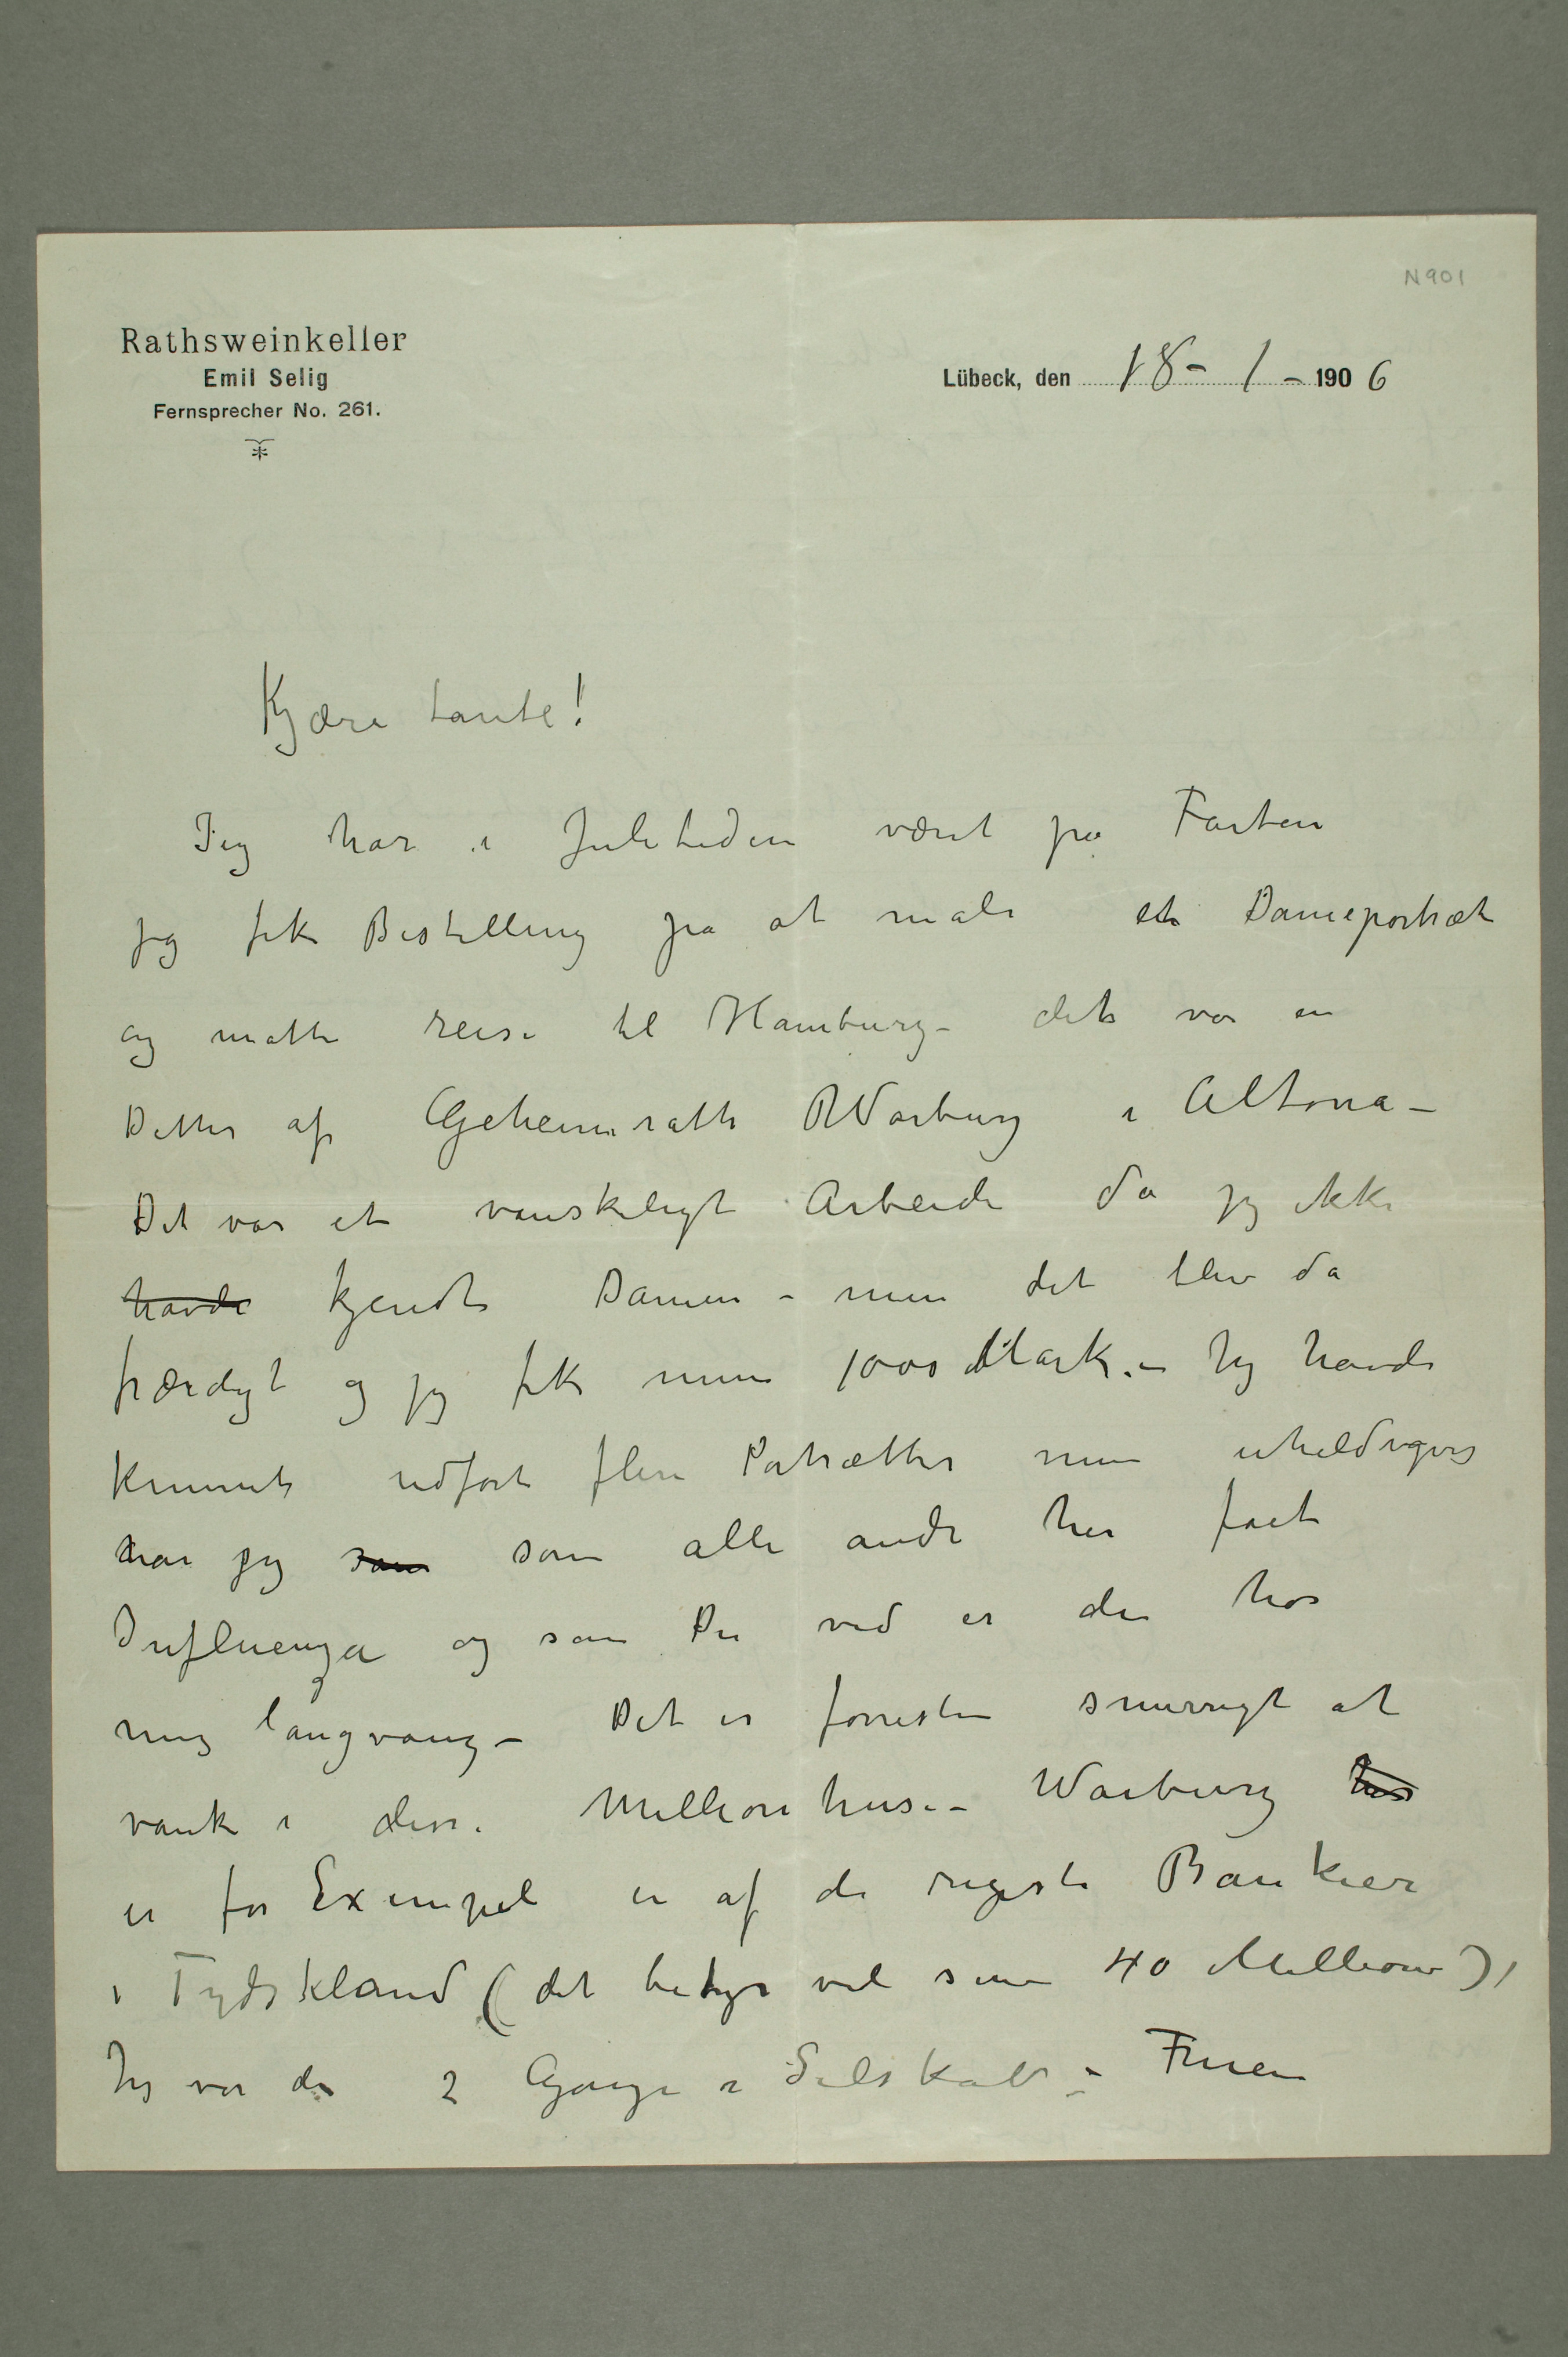 N 901
Rathsweinkeller
Emil Selig
Fernsprecher No. 261.
Lübeck, den 18 – 1 – 1906
Kjære tante!
Jeg har i Juletiden været på Farten
jeg fik Bestilling på at male et Dameportræt
og måtte reise til Hamburg – det var en
Datter af Geheimrath Warburg i Altona –
Det var et vanskeligt Arbeide da jeg ikke
havde kjendte Damen – men det blev da
færdigt og jeg fik mine 1000 Mark. – Jeg havde
kunnet udført flere Portrætter men uheldigvis
har jeg som som alle andre her fået
Influenza og som Du ved er den hos
mig langvarig – Det er forresten snurrigt at
vanke i disse Millionhuse – Warburg har
er for Exempel en af de rigeste Bankier
i Tydskland (det betyr vel sine 40 Millioner),
Jeg var der 2 Gange i Selskab – Fruen